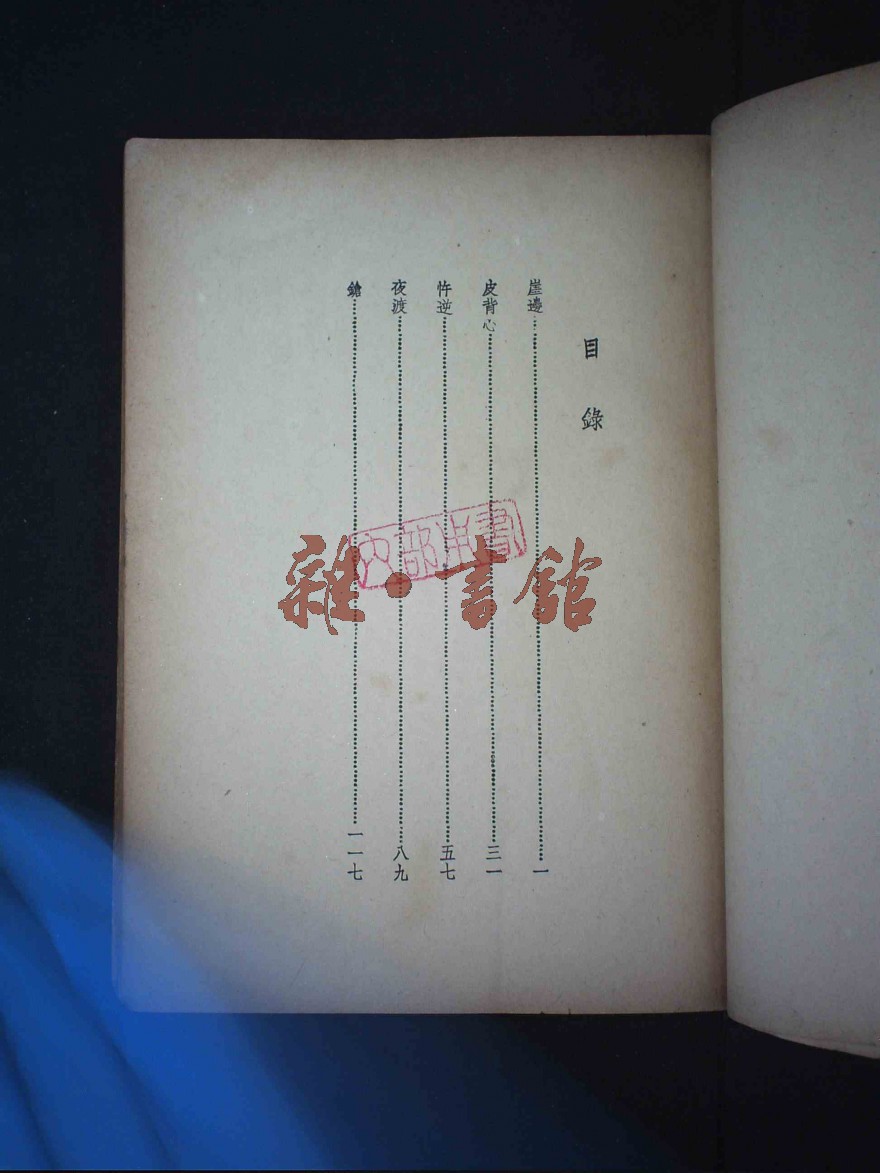 目錄
崖邊 一
皮背心 三一
忤逆 五七
夜渡 八九
鎗 一一七
內部圖書
雜·書館